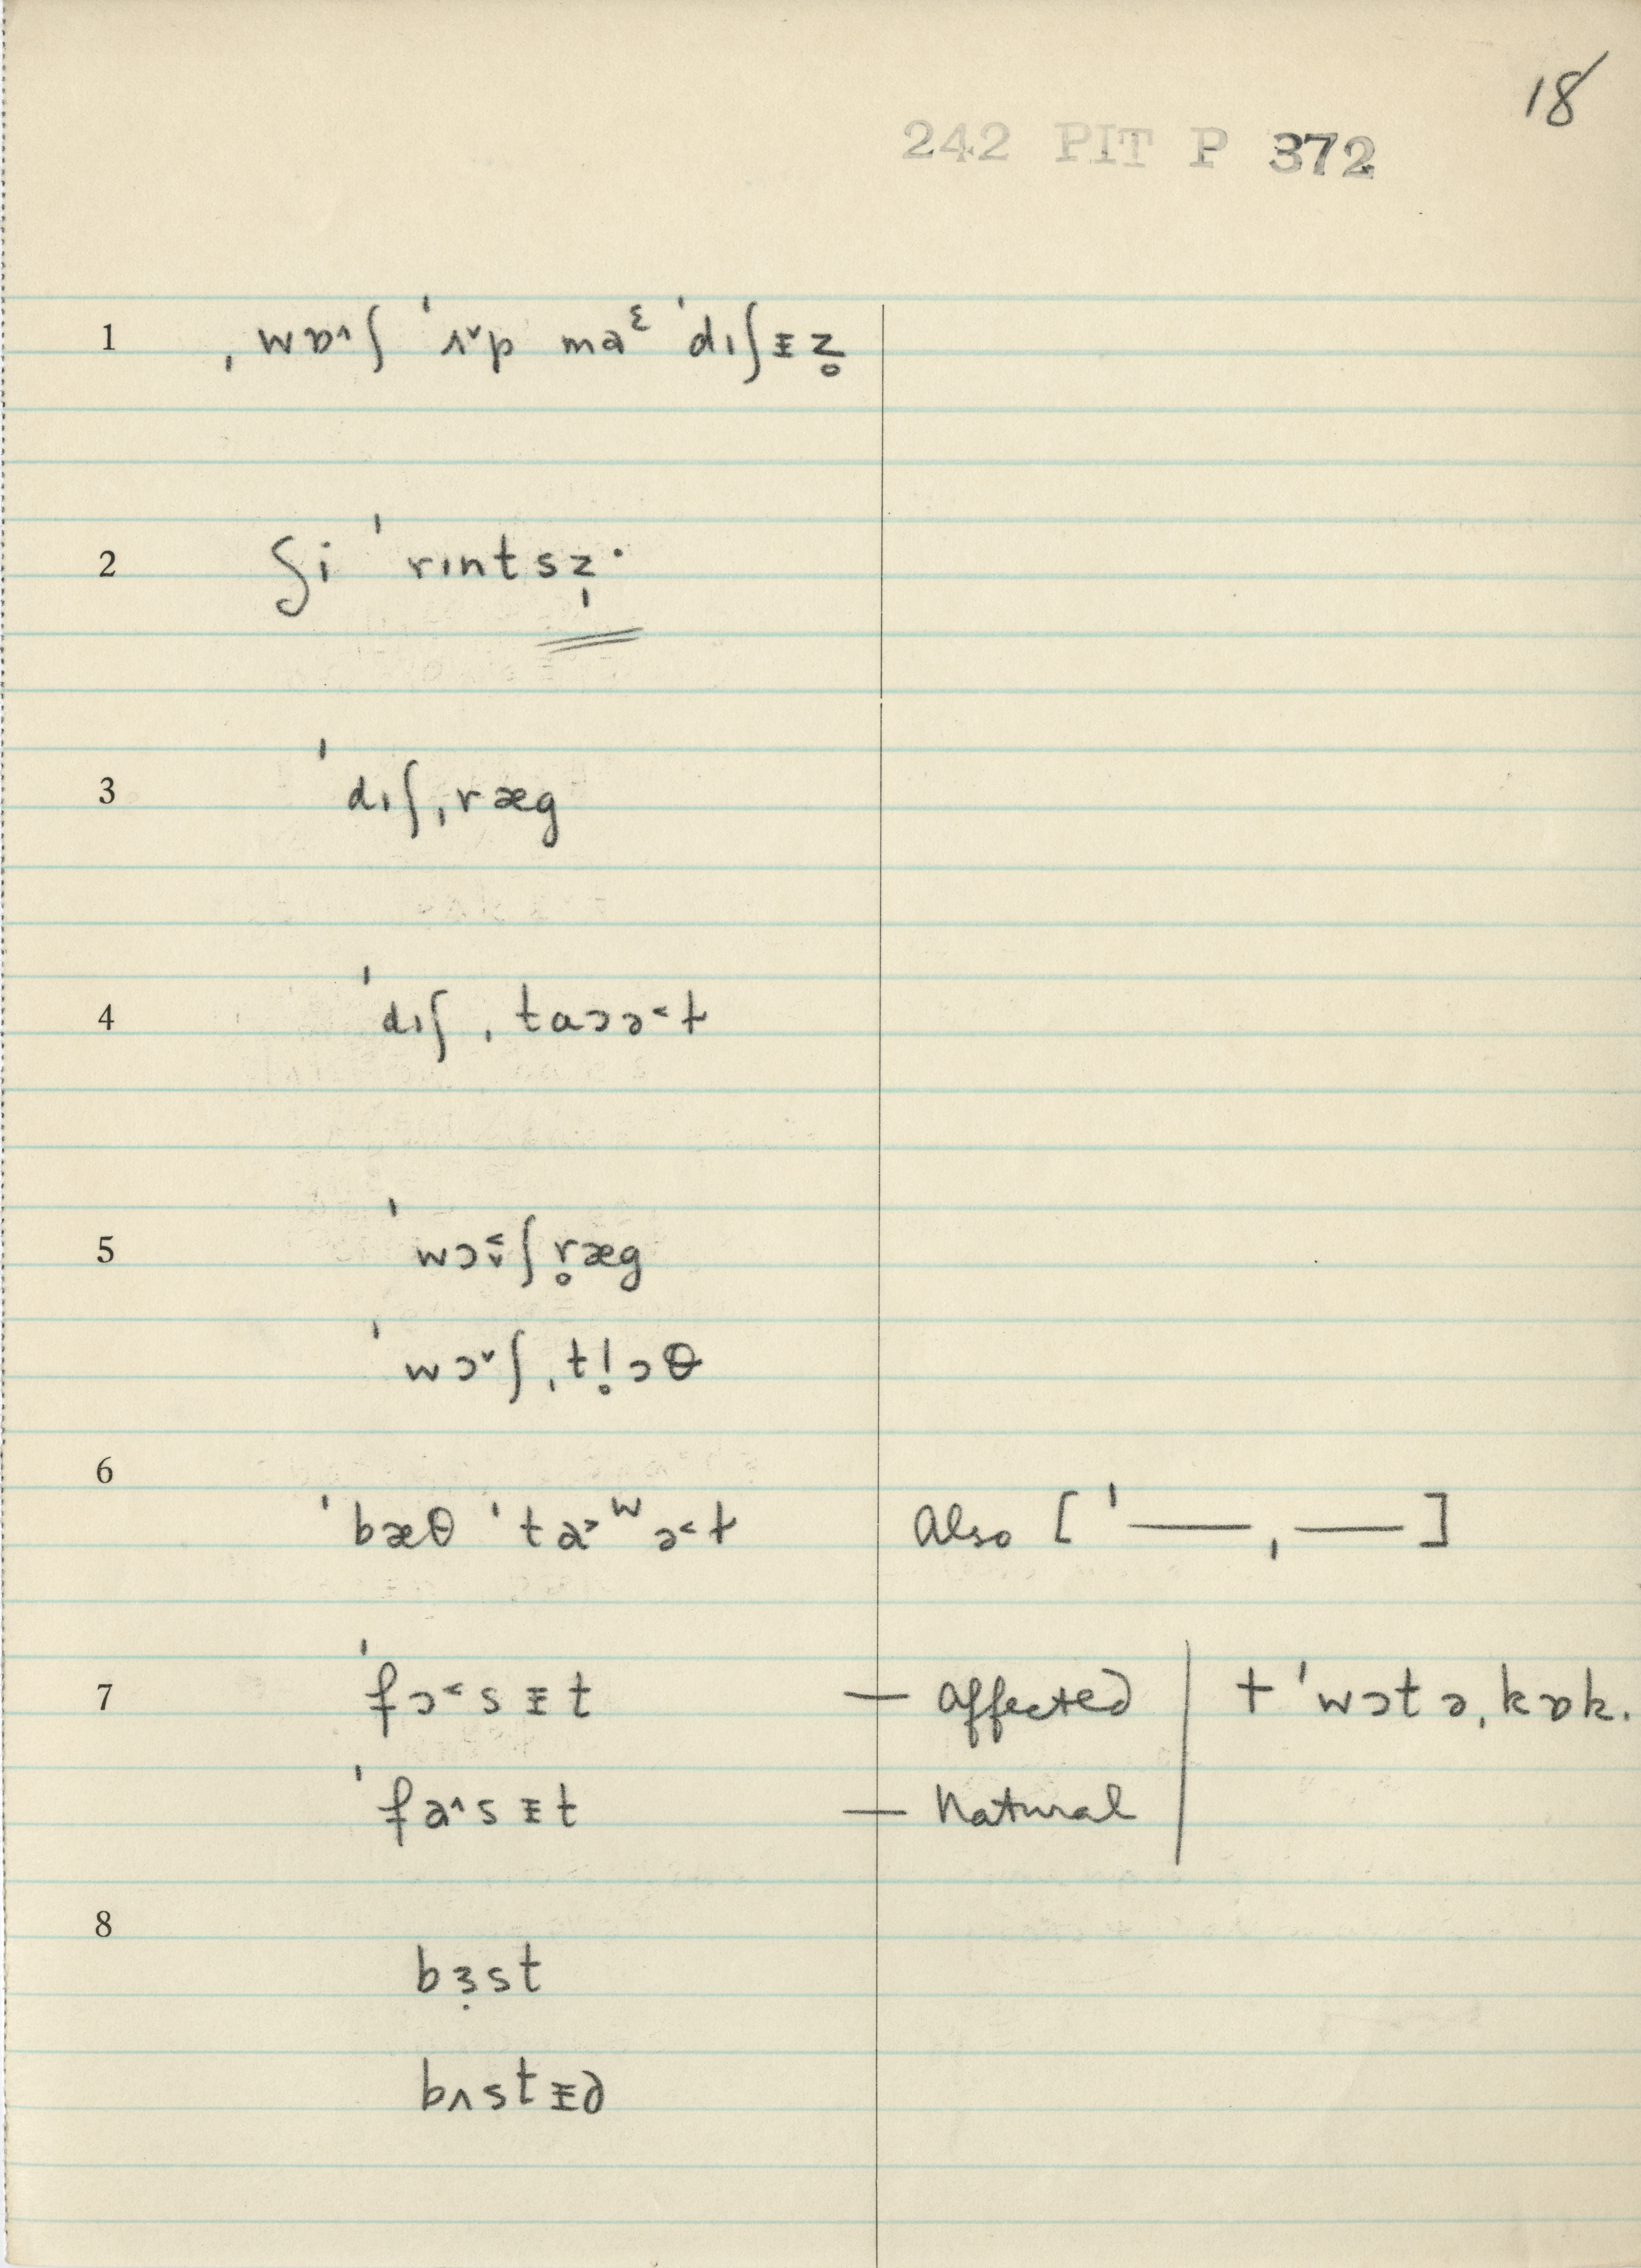 18
242 PIT P 372
1 ˌwɒ˄ʃ ˈʌ˅p maᵋ ˈdɪʃɪ̵z̥
2 ʃi ˈrɪntsz̩·
3 ˈdɪʃˌræg
4 ˈdɪʃˌtaɔə˂t
5 ˈwɔ˂˅ʃr̥æg
ˈwɔ˅ʃˌtl̥ɔθ
6 ˈbæθ ˈta˃ʷə˂t Also [ˈ—ˌ—]
7 ˈfɔ˂sɪ̵t — affected + ˈwɔtəˌkɒk.
ˈfa˄sɪ̵t — Natural
8 bɜ̣st
bʌstɪ̵d